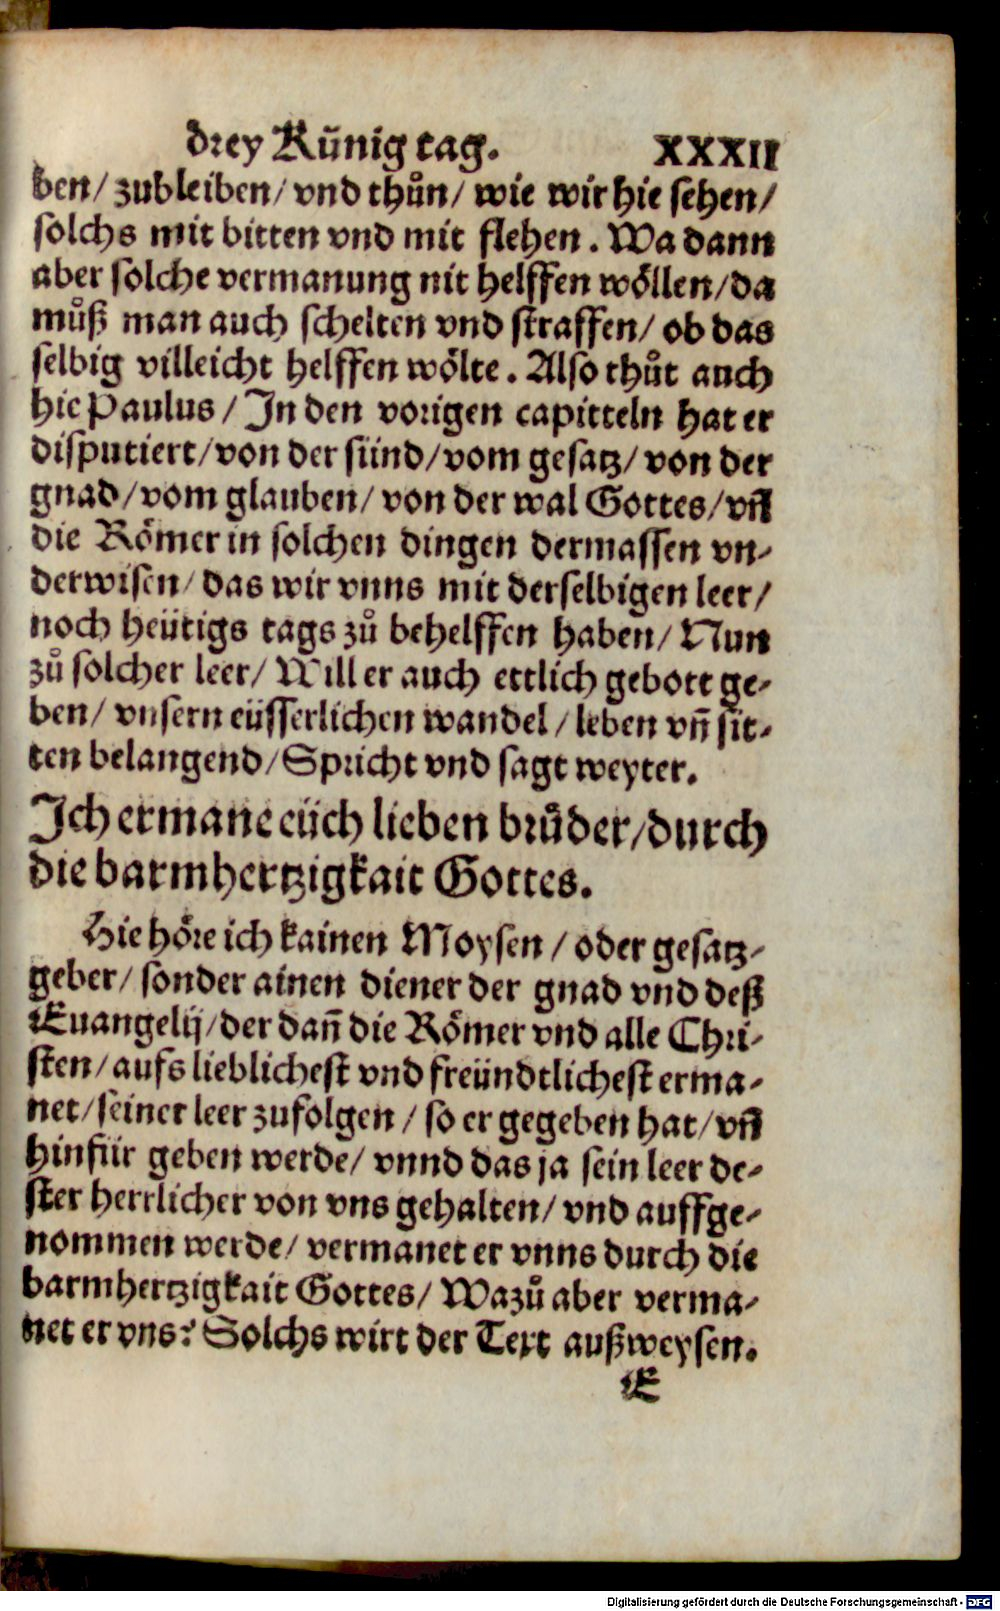 drey Künig tag. XXXII
ben/ zubleiben/ vnd thůn/ wie wir hie sehen/
solchs mit bitten vnd mit flehen. Wa dann
aber solche vermanung nit helffen wöllen/ da
můß man auch schelten vnd straffen/ ob das
selbig villeicht helffen wölte. Also thůt auch
hie Paulus/ In den vorigen capitteln hat er
disputiert/ von der sünd/ vom gesatz/ von der
gnad/ vom glauben/ von der wal Gottes/ vñ
die Römer in solchen dingen dermassen vn-
derwisen/ das wir vnns mit derselbigen leer/
noch heütigs tags zů behelffen haben/ Nun
zů solcher leer/ Will er auch ettlich gebott ge-
ben/ vnsern eüsserlichen wandel/ leben vñ sit-
ten belangend/ Spricht vnd sagt weyter.
Ich ermane eüch lieben brůder/ durch
die barmhertzigkait Gottes.
Hie höre ich kainen Moysen/ oder gesatz-
geber/ sonder ainen diener der gnad vnd deß
Euangelij/ der dañ die Römer vnd alle Chri-
sten/ aufs lieblichest vnd freündtlichest erma-
net/ seiner leer zufolgen/ so er gegeben hat/ vñ
hinfür geben werde/ vnnd das ja sein leer de-
ster herrlicher von vns gehalten/ vnd auffge-
nommen werde/ vermanet er vnns durch die
barmhertzigkait Gottes/ Wazů aber verma-
net er vns? Solchs wirt der Text außweysen.
E
Digitalisierung gefördert durch die Deutsche Forschungsgemeinschaft - DFG